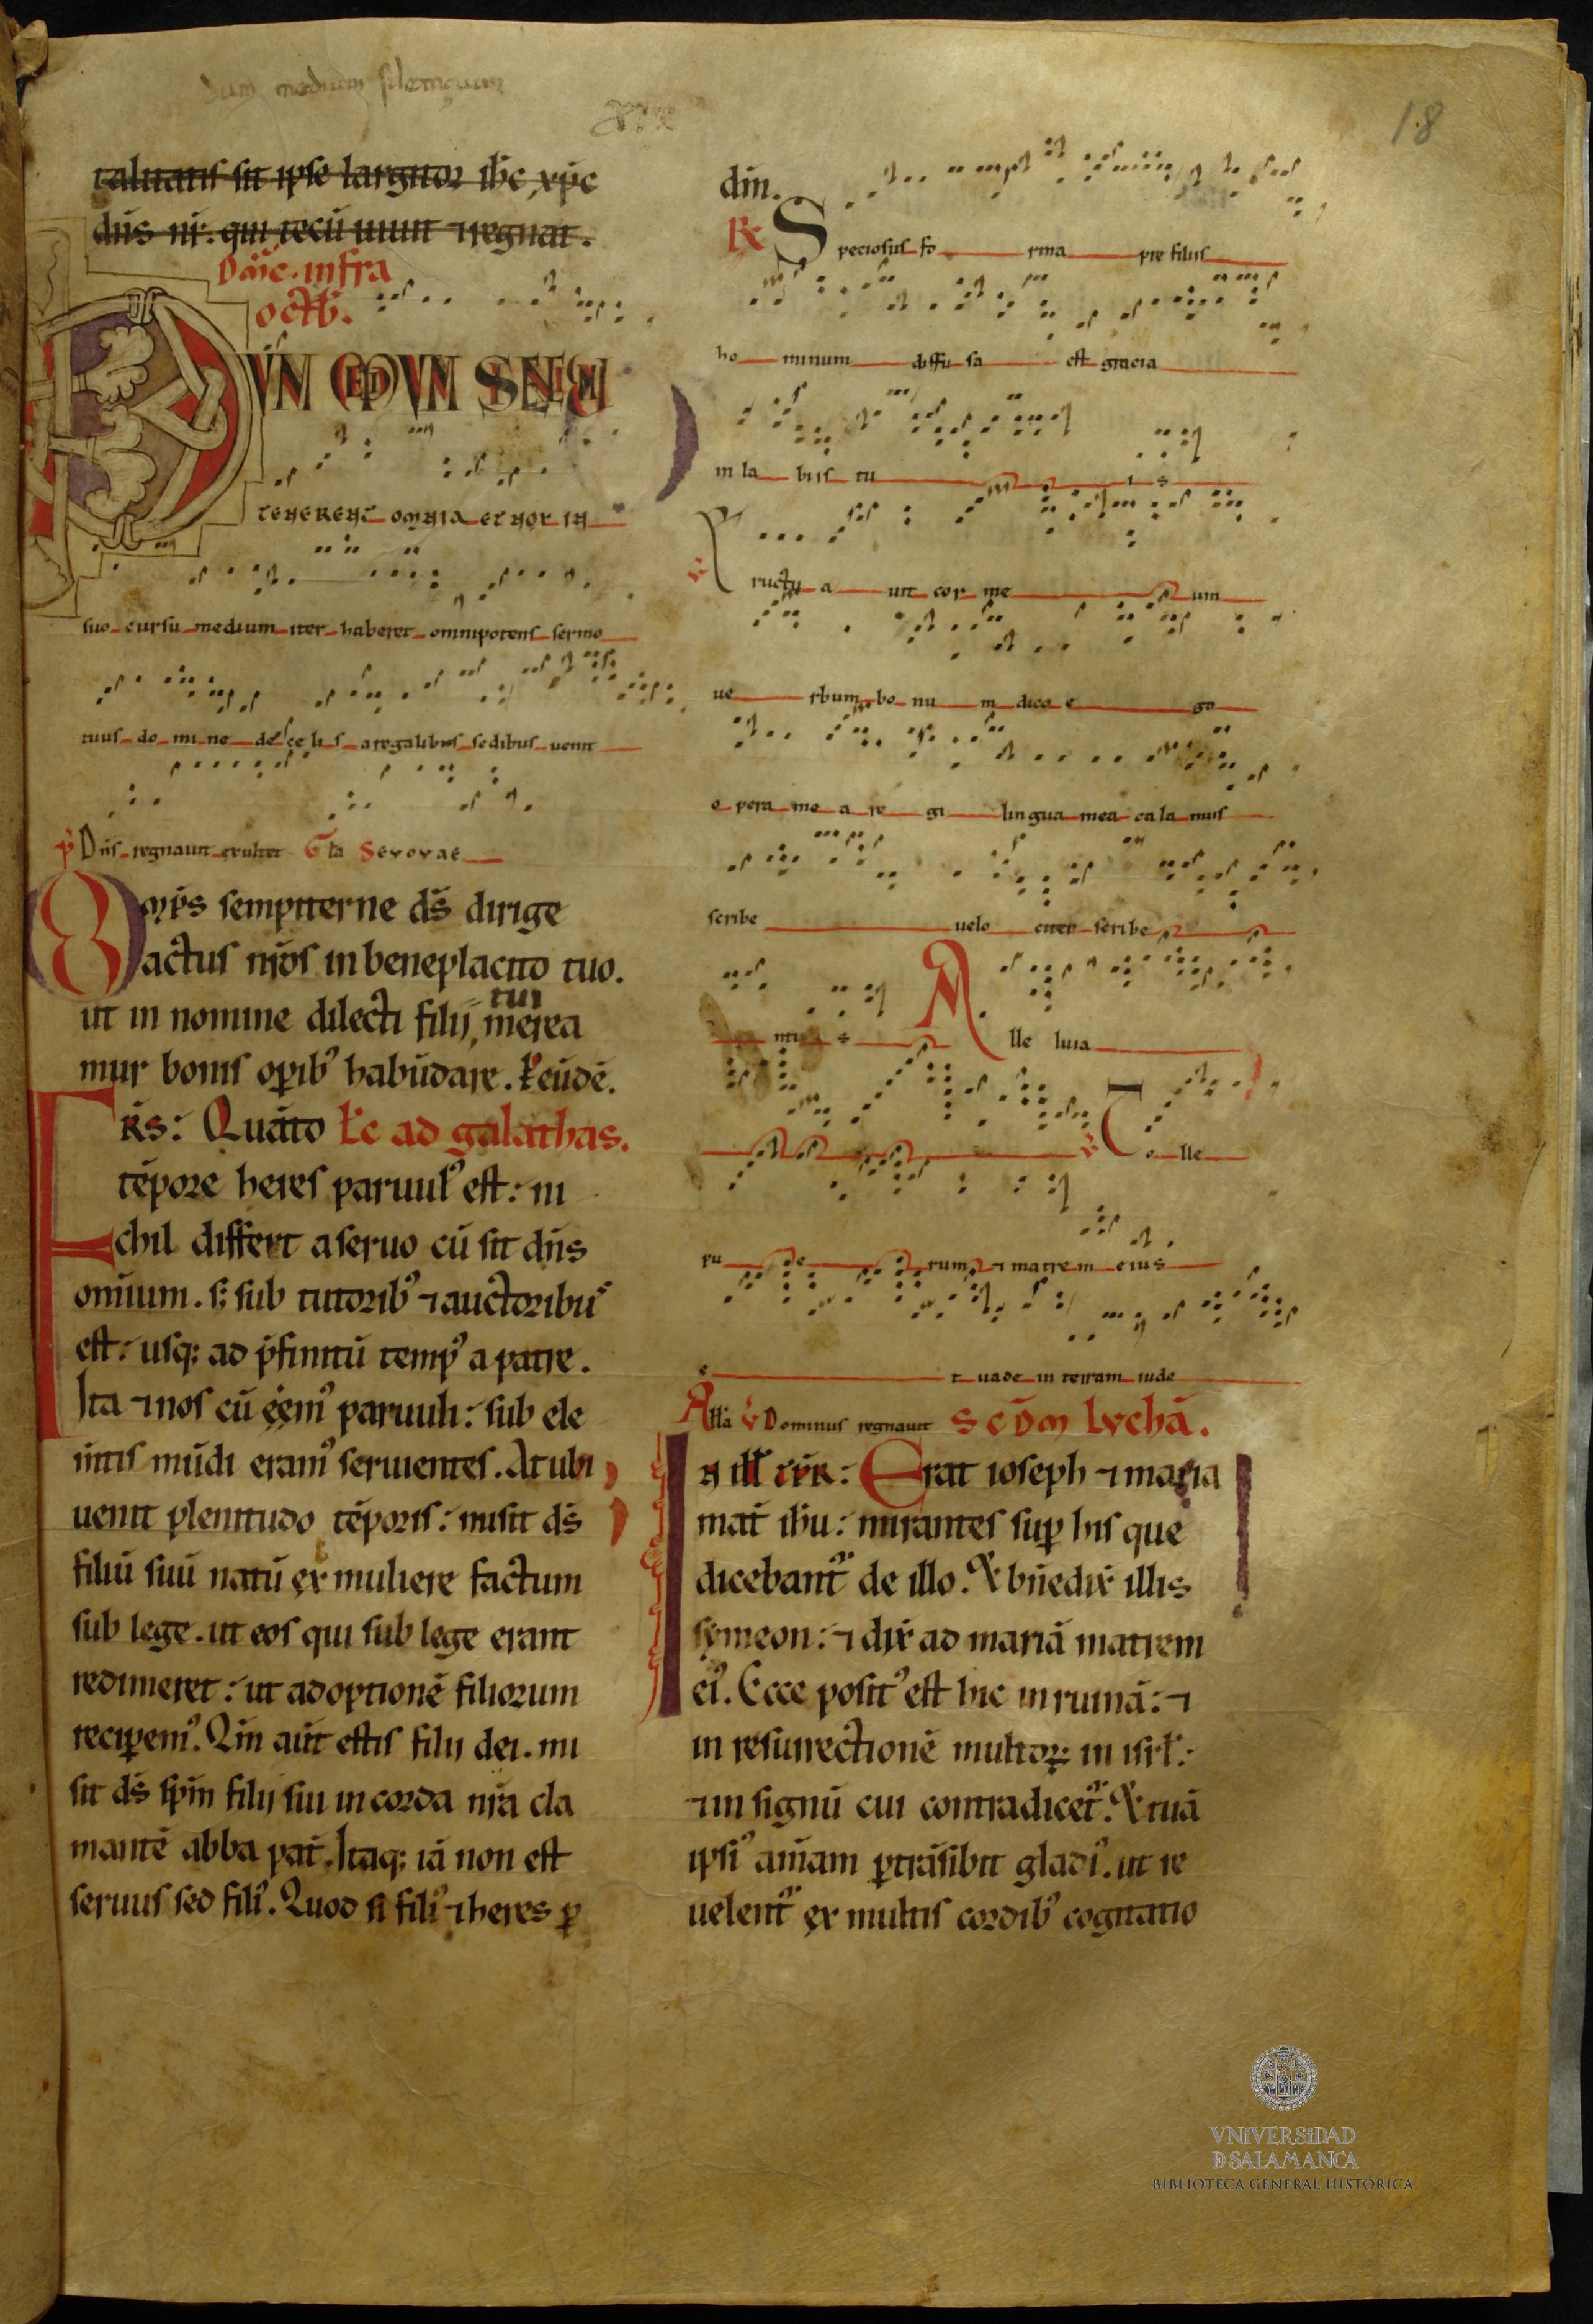 dum medium silencium
18
talitatis sit ipse largitor ih̄c xp̄c
dn̄s nr̄. qui tecū uiuit ⁊ regnat.
Dn̄ic. infra
oct̄b.
DVM MEDIVM SILENCIVM
tenerent omnia et nox in
suo cursu medium iter haberet omnipotens sermo
tuus domine de celis a regalibus sedibus uenit
p̄ Dn̄s regnauit exultet Gl̄a Seuouae
Om̄ps sempiterne ds̄ dirige
actus nr̄os in beneplacito tuo.
ut in nomine dilecti filij tui merea
mur bonis op̄ib9 habūdare. P̄ eūdē.
Fr̄s: Quāto Lc̄ ad galathas.
tēpore heres paruul9 est: ni
chil differt a seruo cū sit dn̄s
omium. s; sub tutorib9 ⁊ auctoribus
est: usq; ad p̄finitū temp9 a patre.
Ita ⁊ nos cū eem9 paruuli: sub ele
m̄tis mūdi eram9 seruientes. At ubi
uenit plenitudo tēporis: misit ds̄
filiū suū natū ex muliere factum
sub lege. ut eos qui sub lege erant
redimeret: ut adoptionē filiorum
recip̄em9. Qm̄ aūt estis filij dei. mi
sit ds̄ sp̄m filij sui in corda nr̄a cla
mantē abba pat̄. Itaq; iā non est
seruus sed fili9. Quod si fili9 ⁊ heres p̄
dm̄.
R̄ Speciosus forma pre filiis
hominum diffusa est gracia
in labiis tuis
v̄ Eructuauit cor meum
uerbum bonum dico ego
opera mea regi lingua mea calamus
scribe uelociter scribe
ntis Alleluia
v̄ Tolle
puerum ⁊ matrem eius
et uade in terram iuda
All̄a v̄ Dominus regnauit Scd̄m lvchā.
In ill̄ tp̄r: Erat ioseph ⁊ maria
mat̄ ih̄u: mirantes sup̄ his que
dicebant̄ de illo. Et bn̄edix̄ illis
symeon: ⁊ dix̄ ad mariā matrem
ei9. Ecce posit9 est hic in ruinā: ⁊
in resurrectionē multoꝝ in isrl̄:
⁊ in signū cui contradicet̄. Et tuā
ipsi9 am̄am p̄trāsibit gladi9. ut re
uelent̄ ex multis cordib9 cogitatio
VNiVERSiDAD
D SALAMANCA
BIBLIOTECA GENERAL HISTÓRICA